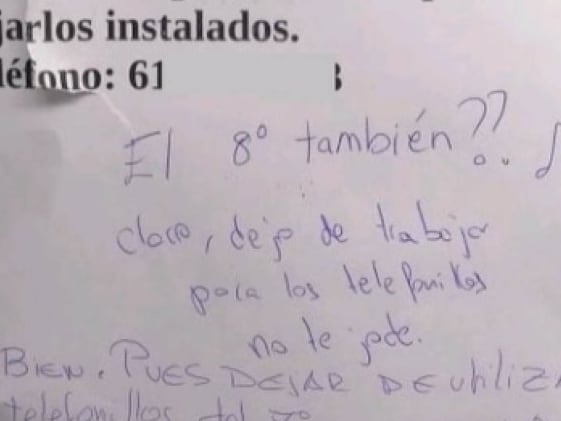 jarlos instalados.
léfono: 61
El 8º también??
claro, dejo de trabajar
para los telefonillos
no te jode.
BIEN. PUES DEJAR DE UtiliZA
telefonillos del 7º